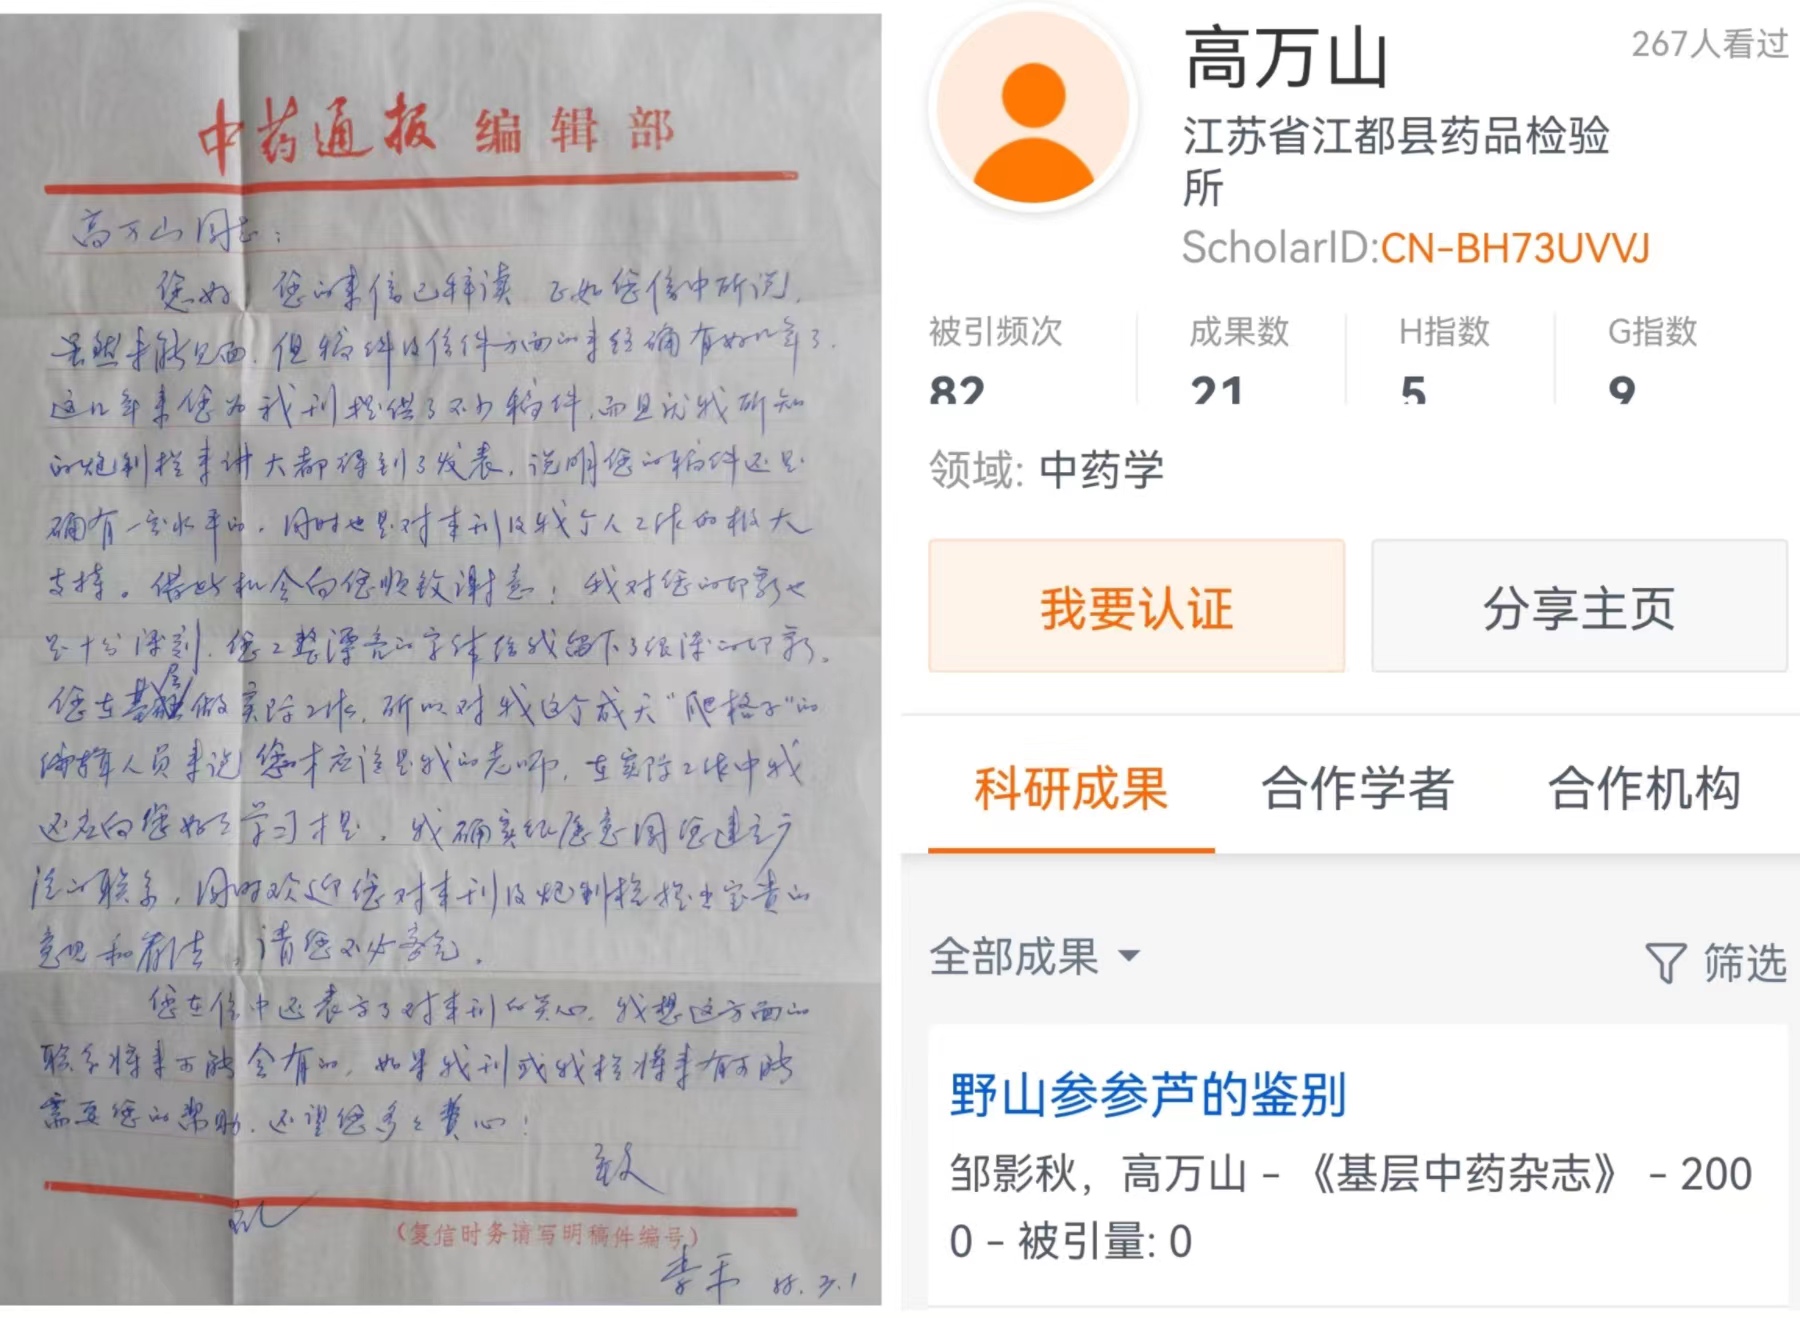 中药通报 编辑部
高万山同志：
您好！您的来信已拜读 正如您信中所说，
虽然未能见面，但稿件及信件方面的来往确有好几年了.
这几年来您为我刊提供了不少稿件，而且就我所知
的炮制栏来讲大都得到了发表，说明您的稿件还是
确有一定水平的，同时也是对本刊及我个人工作的极大
支持。借此机会向您顺致谢意！我对您的印象也
是十分深刻，您工整漂亮的字体给我留下了很深的印象。
您在基层做实际工作，所以对我这个成天“爬格子”的
编辑人员来说您才应该是我的老师，在实际工作中我
还应向您好好学习才是。我确实很愿意同您建立广
泛的联系，同时欢迎您对本刊及炮制栏提出宝贵的
意见和看法，请您不必客气。
您在信中还表示了对本刊的关心，我想这方面的
联系将来可能会有的，如果我刊或我栏将来有可能
需要您的帮助，还望您多多费心！
致
礼
（复信时务请写明稿件编号）
李平 88.3.1
高万山
267人看过
江苏省江都县药品检验
所
ScholarID:CN-BH73UVVJ
被引频次 成果数 H指数 G指数
82 21 5 9
领域: 中药学
我要认证 分享主页
科研成果 合作学者 合作机构
全部成果 筛选
野山参参芦的鉴别
邹影秋，高万山 - 《基层中药杂志》 - 200
0 - 被引量: 0